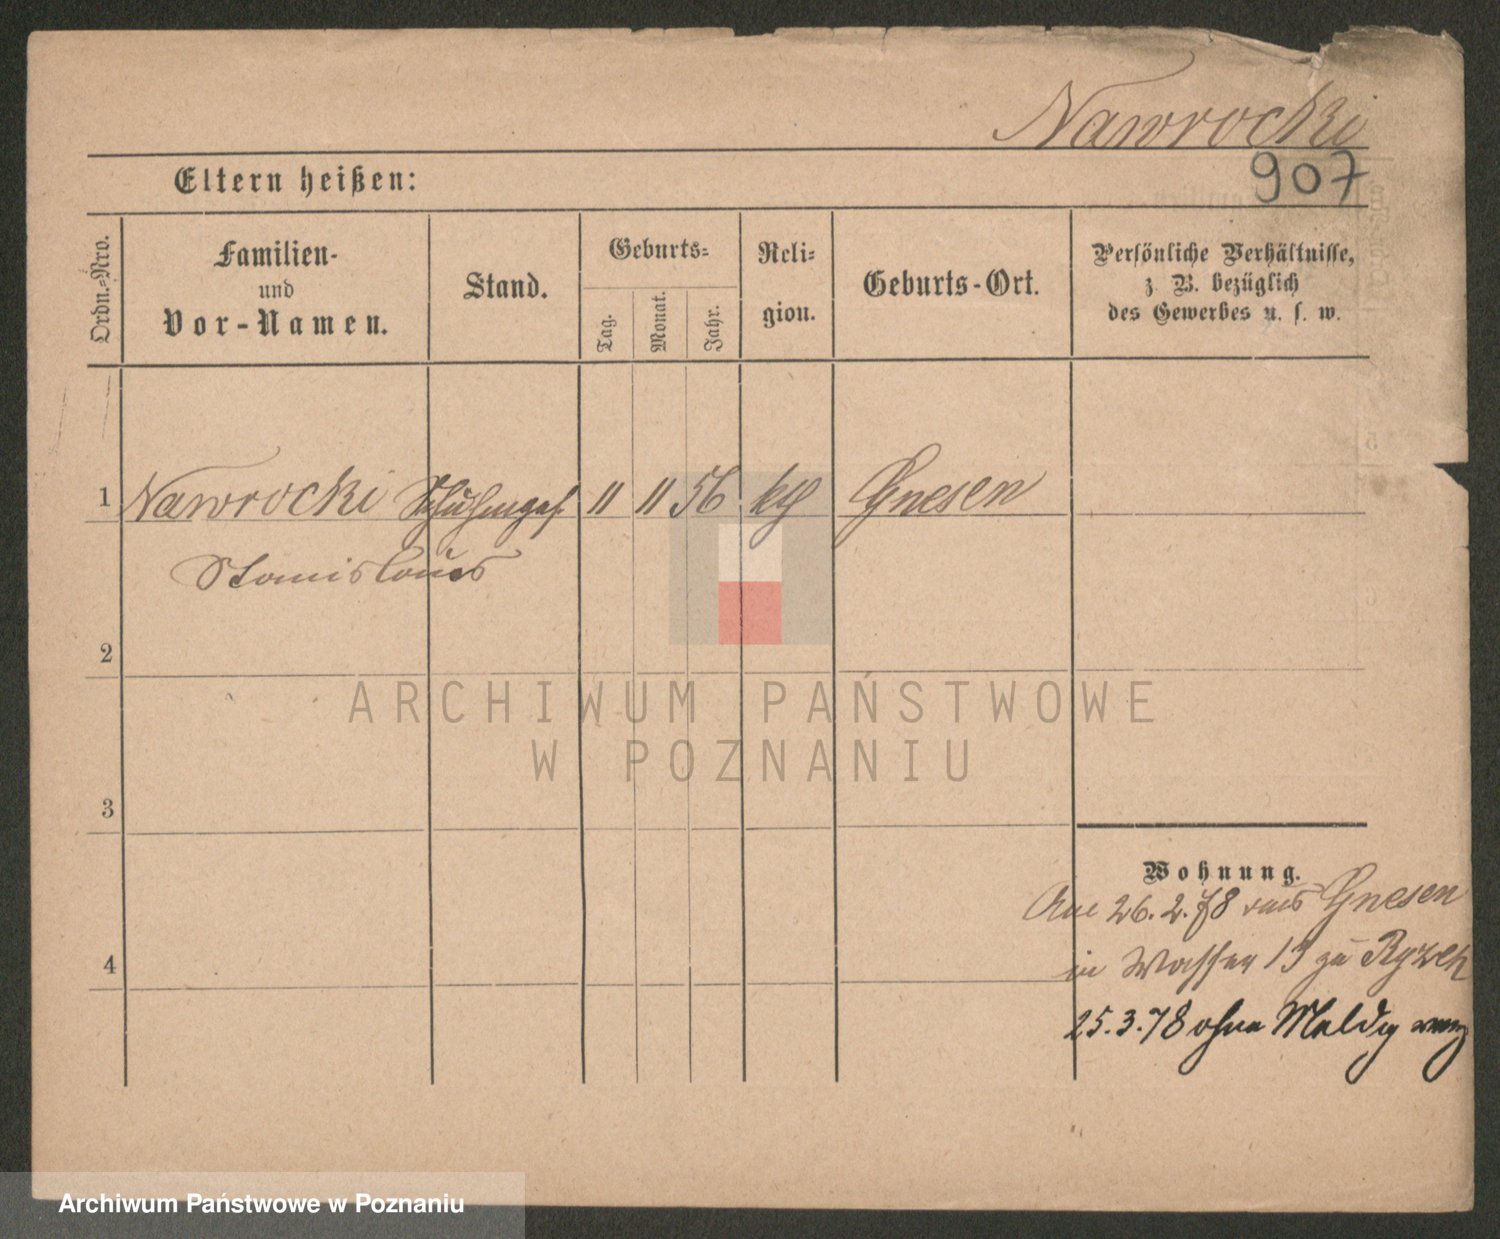 Nawrocki
907
Eltern heißen:
Ordn.-Nro.
Familien-
und
Vor-Namen.
Stand.
Geburts-
Tag.
Monat.
Jahr.
Reli-
gion.
Geburts-Ort.
Persönliche Verhältnisse,
z. B. bezüglich
des Gewerbes u. s. w.
1 Nawrocki Schuhmges 11 11 56 kth Gnesen
Stanislaus
2
3
4
Wohnung.
Am 26.2.78 aus Gnesen
in Wasser 13 zu
25.3.78 ohne Meldg weg
ARCHIWUM PAŃSTWOWE
W POZNANIU
Archiwum Państwowe w Poznaniu